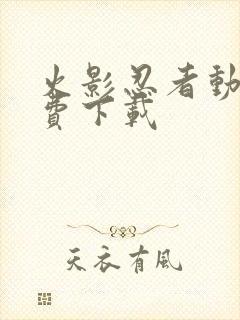 火影忍者動
費下載
天衣有風